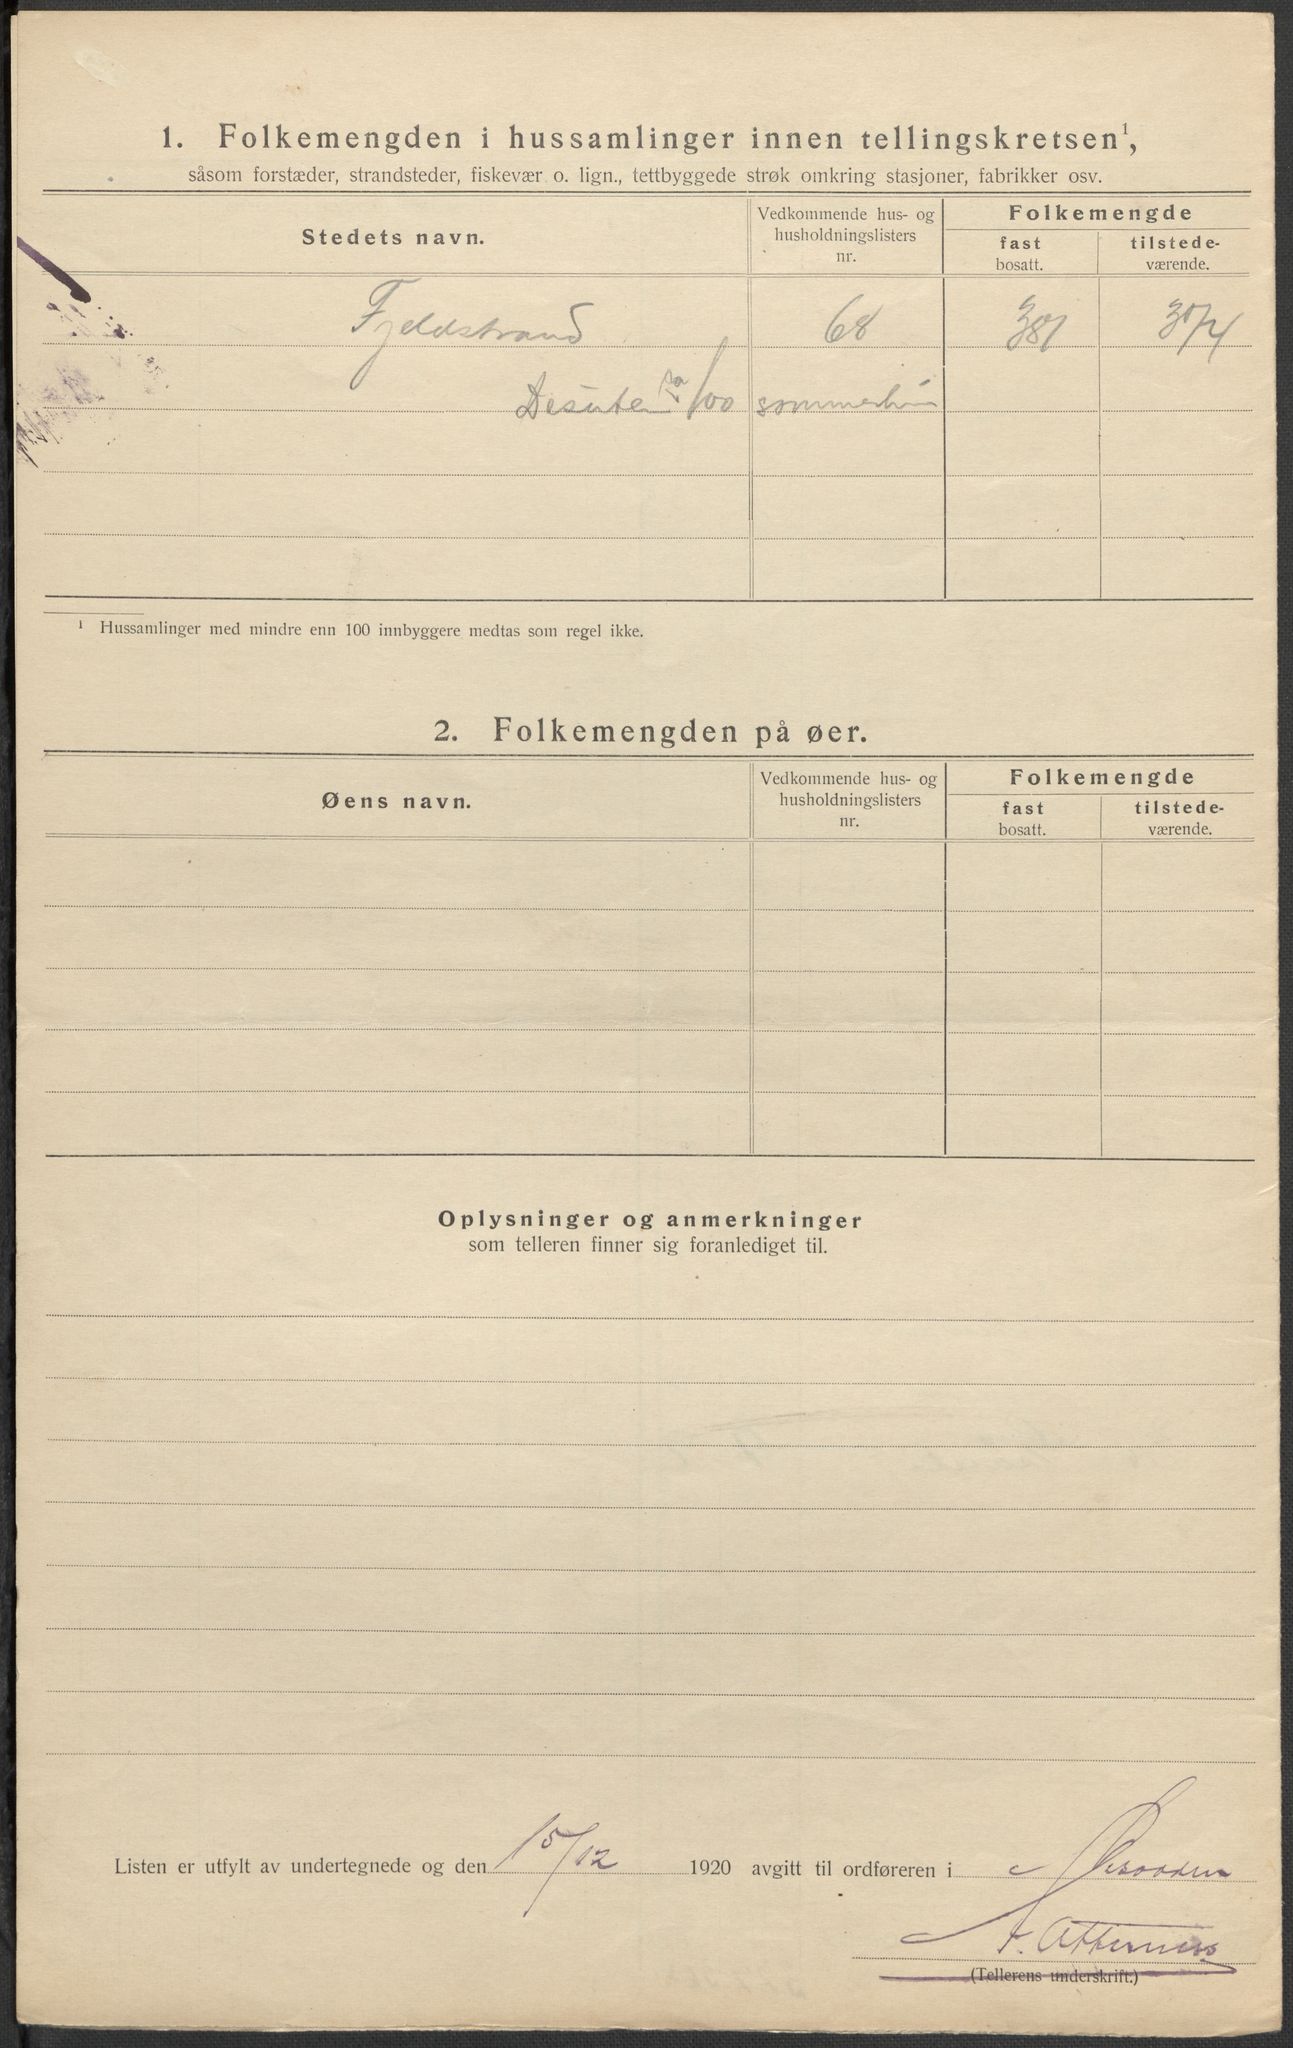 1. Folkemengden i hussamlinger innen tellingskretsen¹,
såsom forstæder, strandsteder, fiskevær o. lign., tettbyggede strøk omkring stasjoner, fabrikker osv.
Stedets navn. Vedkommende hus- og husholdningslisters nr. Folkemengde
fast bosatt. tilstede-værende.
Fjeldstrand 68 381 374
Desuten ca 100 sommerhus
¹ Hussamlinger med mindre enn 100 innbyggere medtas som regel ikke.
2. Folkemengden på øer.
Øens navn. Vedkommende hus- og husholdningslisters nr. Folkemengde
fast bosatt. tilstede-værende.
Oplysninger og anmerkninger
som telleren finner sig foranlediget til.
Listen er utfylt av undertegnede og den 15/12 1920 avgitt til ordføreren i Nesodden
(Tellerens underskrift.)